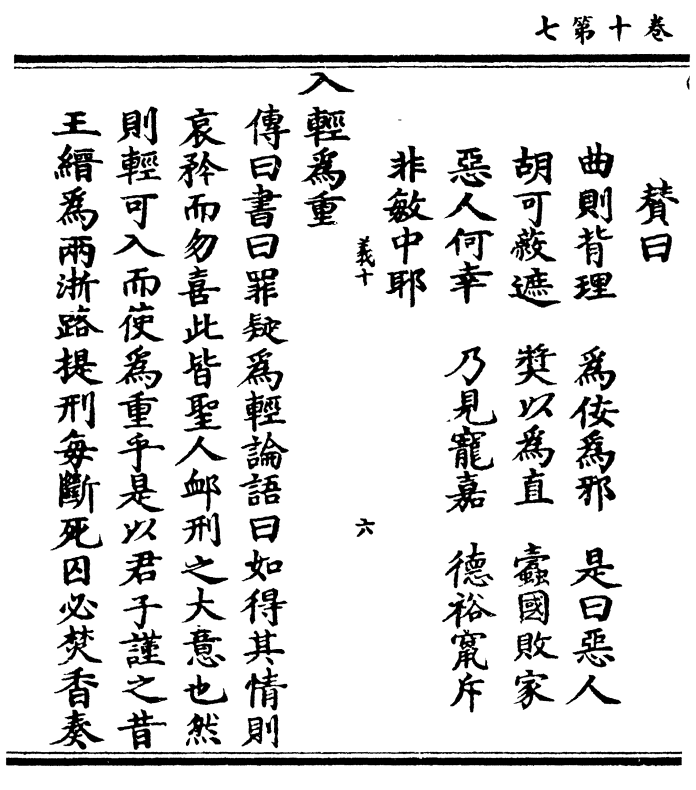 卷十第七
贊曰
曲則背理 爲佞爲邪 是曰惡人
胡可蔽遮 奬以爲直 蠹國敗家
惡人何幸 乃見寵嘉 德裕竄斥
非敏中耶
義十 六
入輕爲重
傳曰書曰罪疑爲輕論語曰如得其情則
哀矜而勿喜此皆聖人邺刑之大意也然
則輕可入而使爲重乎是以君子謹之昔
王縉爲兩浙路提刑每斷死囚必焚香奏